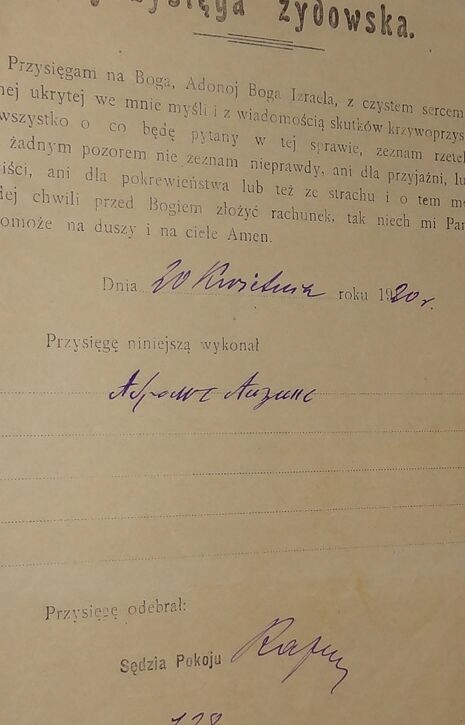 żydowska.
Przysięgam na Boga, Adonoj Boga Izraela, z czystem sercem
nej ukrytej we mnie myśli i z wiadomością skutków krzywoprzys
wszystko o co będę pytany w tej sprawie, zeznam rzetel
żadnym pozorem nie zeznam nieprawdy, ani dla przyjaźni, lu
iści, ani dla pokrewieństwa lub też ze strachu i o tem
dej chwili przed Bogiem złożyć rachunek, tak niech mi Pan
omoże na duszy i na ciele Amen.
Dnia 20 Kwietnia roku 1920 r.
Przysięgę niniejszą wykonał
Przysięgę odebrał:
Sędzia Pokoju
128